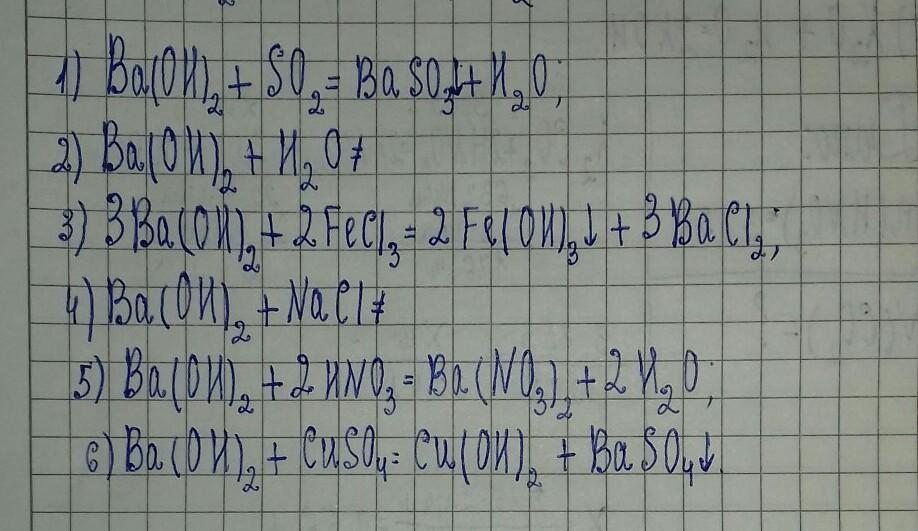 1) Ba(OH)₂ + SO₂ = BaSO₃↓ + H₂O;
2) Ba(OH)₂ + H₂O ≠
3) 3Ba(OH)₂ + 2FeCl₃ = 2Fe(OH)₃↓ + 3BaCl₂;
4) Ba(OH)₂ + NaCl ≠
5) Ba(OH)₂ + 2HNO₃ = Ba(NO₃)₂ + 2H₂O;
6) Ba(OH)₂ + CuSO₄ = Cu(OH)₂ + BaSO₄↓